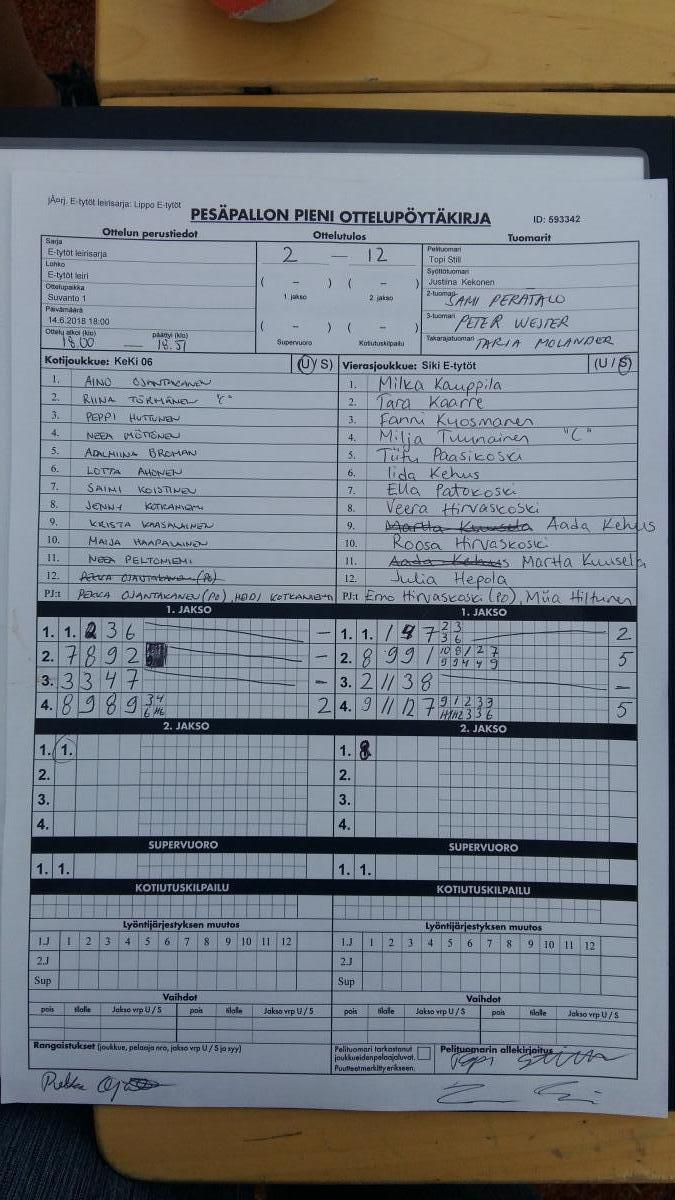 jÄorj. E-tytöt leirisarja: Lippo E-tytöt
PESÄPALLON PIENI OTTELUPÖYTÄKIRJA ID: 593342
Ottelun perustiedot Ottelutulos Tuomarit
Sarja
E-tytöt leirisarja
Lohko
E-tytöt leiri
Ottelupaikka
Suvanto 1
Päivämäärä
14.6.2018 18:00
Ottelu alkoi (klo) päättyi (klo)
18.00 — 18.51
2 — 12
( – ) ( – )
1. jakso 2. jakso
( – ) ( – )
Supervuoro Kotiutuskilpailu
Pelituomari
Topi Still
Syöttötuomari
Justiina Kekonen
2-tuomari
SAMI PERÄTALO
3-tuomari
PETER WESTER
Takarajatuomari
TARJA MOLANDER
Kotijoukkue: KeKi 06 (U/ S)
1. AINO OJANTAKANEN
2. RIINA TÖRMÄNEN "C"
3. PEPPI HUTTUNEN
4. NEEA MÖTÖNEN
5. ADALMIINA BROMAN
6. LOTTA AHONEN
7. SAIMI KOISTINEN
8. JENNY KOTKANIEMI
9. KRISTA KAASALAINEN
10. MAIJA HAAPALAINEN
11. NEEA PELTONIEMI
12. PEKKA OJANTAKANEN (PO)
PJ:t PEKKA OJANTAKANEN (PO), HEIDI KOTKANIEMI
Vierasjoukkue: Siki E-tytöt (U / S)
1. Milka Kauppila
2. Tara Kaarre
3. Fanni Kyosmanen
4. Milja Tuunainen "C"
5. Tiitu Paasikoski
6. Iida Kehus
7. Ella Patokoski
8. Veera Hirvaskoski
9. Martta Kuusela Aada Kehus
10. Roosa Hirvaskoski
11. Aada Kehus Martta Kuusela
12. Julia Hepola
PJ:t Erno Hirvaskoski (PO), Miia Hiltunen
1. JAKSO
1. 1. 2 3 6 –
2. 7 8 9 2 –
3. 3 3 4 7 –
4. 8 9 8 9 2
1. JAKSO
1. 1. 1 8 7 2 3 2
3 6
2. 8 9 9 1 10 8 1 2 7 5
9 9 4 4 9
3. 2 11 3 8 –
4. 9 11 12 7 9 1 2 3 3 5
2. JAKSO
1. 1.
2.
3.
4.
2. JAKSO
1. 8
2.
3.
4.
SUPERVUORO
1. 1.
SUPERVUORO
1. 1.
KOTIUTUSKILPAILU
KOTIUTUSKILPAILU
Lyöntijärjestyksen muutos
1.J 1 2 3 4 5 6 7 8 9 10 11 12
2.J
Sup
Lyöntijärjestyksen muutos
1.J 1 2 3 4 5 6 7 8 9 10 11 12
2.J
Sup
Vaihdot
pois tilalle Jakso vrp U / S pois tilalle Jakso vrp U / S
Vaihdot
pois tilalle Jakso vrp U / S pois tilalle Jakso vrp U / S
Rangaistukset (joukkue, pelaaja nro, jakso vrp U / S ja syy)
Pelituomari tarkastanut
joukkueidenpelaajaluvat.
Puutteetmerkittyerikseen.
Pelituomarin allekirjoitus
Topi Still
Pekka